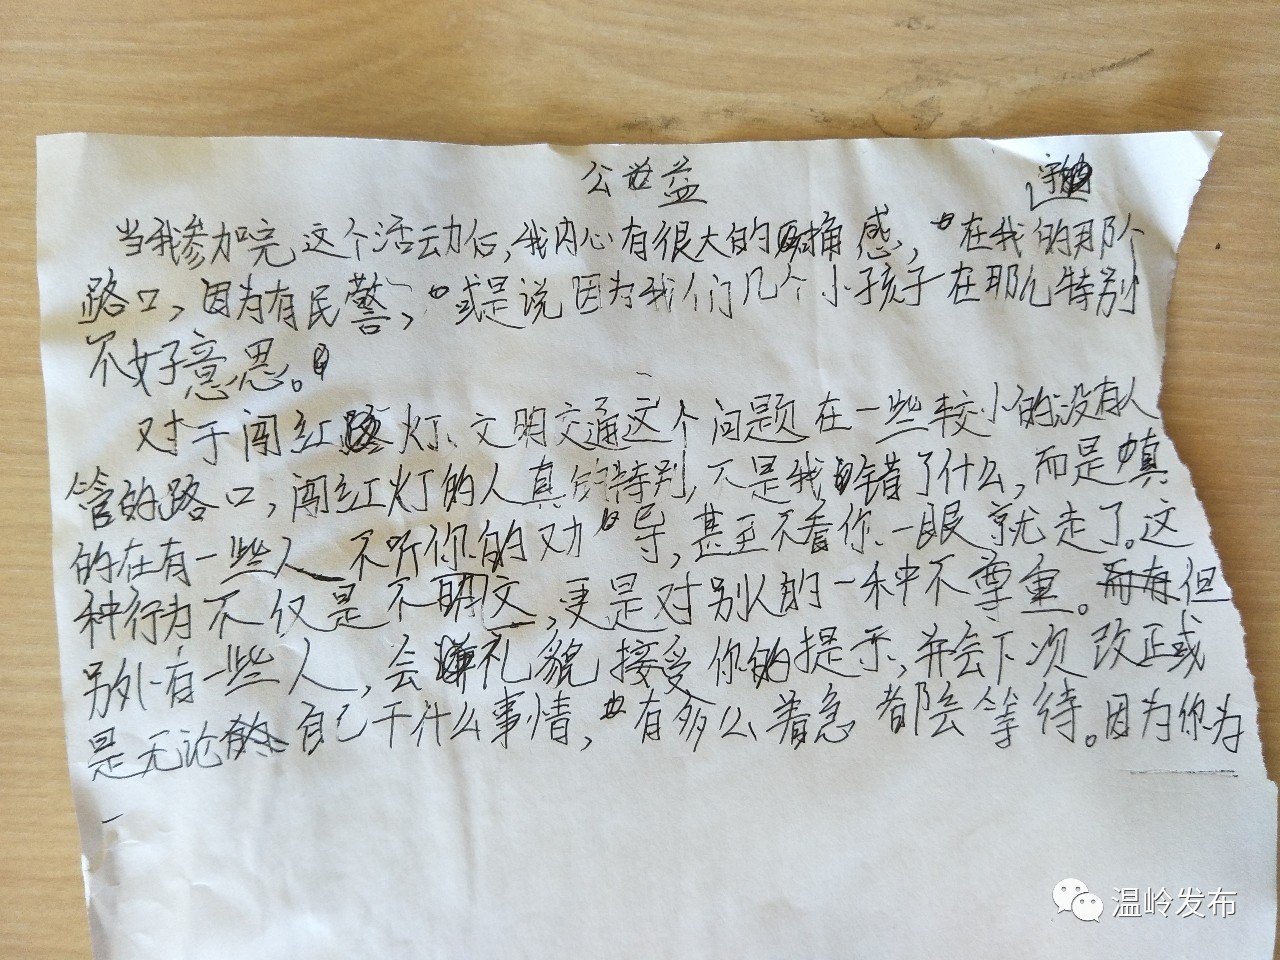 公益
当我参加完这个活动后,我内心有很大的感,在我守的那个
路口,因为有民警,或是说因为我们几个小孩子在那么特别
不好意思。
对于闯红灯、文明交通这个问题在一些较小的没有人
管的路口,闯红灯的人真的特别,不是我错了什么,而是真
的在有一些人 不听你的劝导,甚至不看你一眼就走了。这
种行为不仅是不明文,更是对别人的一种不尊重。但
另外有一些人,会礼貌接受你的提示,并会下次改正或
是无论自己干什么事情,有多么着急都会等待。因为你为
温岭发布